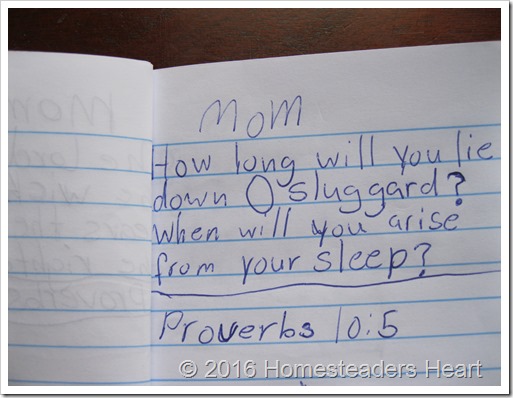 Mom
How long will you lie
down O sluggard?
when will you arise
from your sleep?
Proverbs 10:5
© 2016 Homesteaders Heart